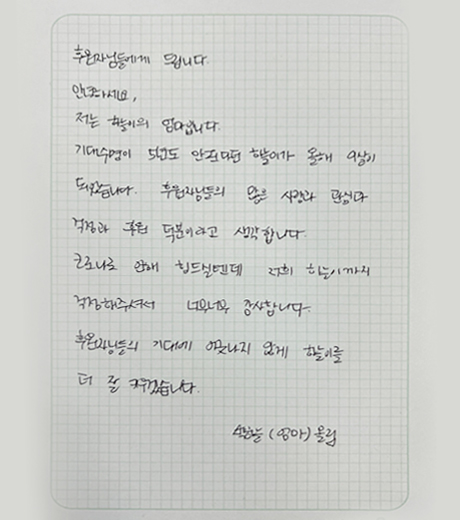 후원자님들에게 드립니다.
안녕하세요,
저는 하늘이의 엄마입니다.
기대수명이 5년도 안된다던 하늘이가 올해 9살이
되었습니다. 후원자님들의 많은 사랑과 관심과
걱정과 후원 덕분이라고 생각합니다.
코로나로 인해 힘드실텐데 저희 하늘이까지
걱정해주셔서 너무너무 감사합니다.
후원자님들의 기대에 어긋나지 않게 하늘이를
더 잘 키우겠습니다.
(엄마) 올림